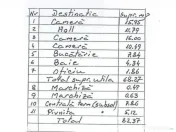 Nr Destinația Supr. m²
1 Cameră 15.75
2 Holl 11.79
3 Cameră 16.00
4 Cameră 10.47
5 Bucătărie 7.84
6 Baie 4.34
7 Oficiu 1.86
Total supr. utilă 68.27
8 Marchiză 0.47
9 Marchiză 0.63
10 Centrala term 7.86
11 Pivniță 6.12
Total 83.37